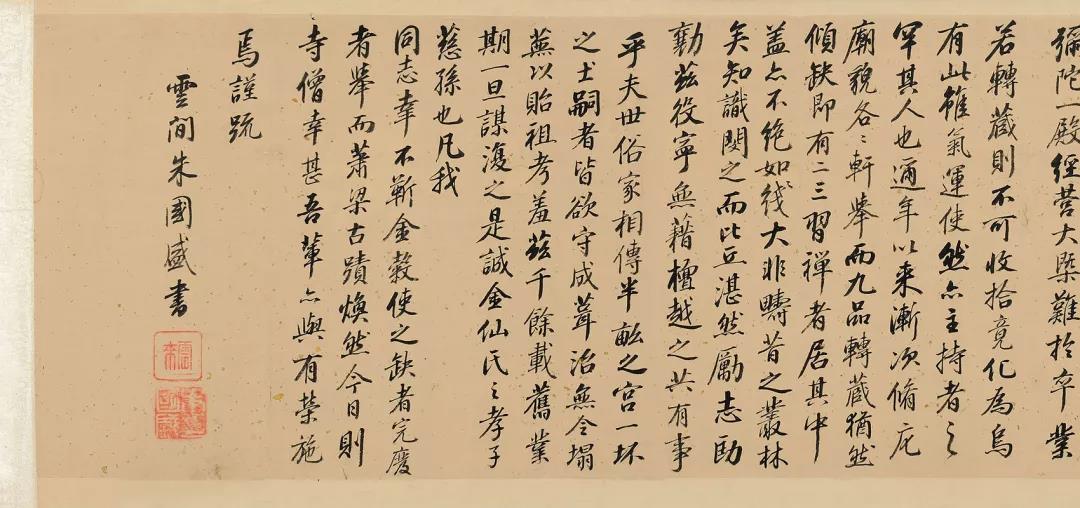 彌陀一殿經營大槩難於卒業
若轉藏則不可收拾竟化為烏
有此雖氣運使然亦主持者之
罕其人也邇年以来漸次脩庀
廟貌各〻軒舉而九品轉藏猶然
傾缺即有二三習禅者居其中
盖亦不绝如线大非疇昔之叢林
矣知識閔之而比丘湛然勵志劻
勷兹役寧無藉檀越之共有事
乎夫世俗家相傳半畝之宫一坏
之土嗣者皆欲守成葺治無令塌
蕪以貽祖考羞兹千餘載舊業
期一旦謀復之是誠金仙氏之孝子
慈孫也凡我
同志幸不靳金榖使之缺者完廢
者舉而蕭梁古蹟煥然今日則
寺僧幸甚吾輩亦與有榮施
焉謹䟽
雲間朱國盛書